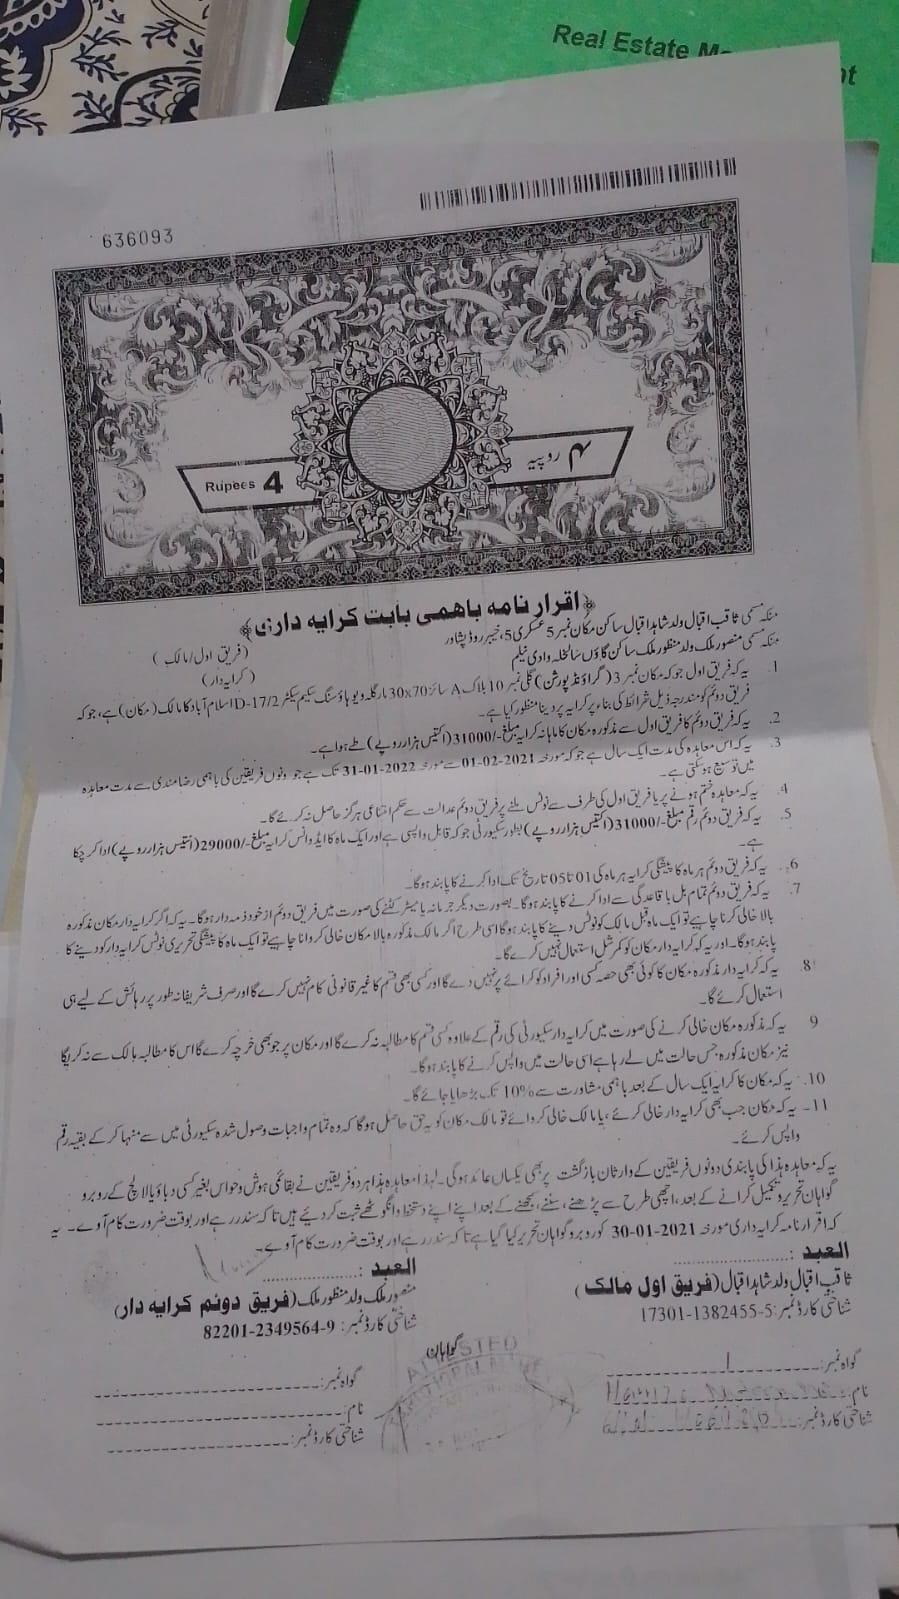 Real Estate
636093
Rupees 4
۴ روپیہ
﴿اقرار نامہ باہمی بابت کرایہ داری﴾
منکہ مسمی ثاقب اقبال ولد شاہد اقبال ساکن مکان نمبر 5 عسکری 5، خیبر روڈ پشاور
(فریق اول/مالک)
منکہ مسمی منصور ملک ولد منظور ملک ساکن گاؤں سالخلہ وادی نیلم
(کرایہ دار)
1. یہ کہ فریق اول جو کہ مکان نمبر 3 (گراؤنڈ پورشن) گلی نمبر 10 بلاک A سائز 30x70 مارگلہ ویو ہاؤسنگ سکیم سیکٹر D-17/2 اسلام آباد کا مالک (مکان) ہے، جو کہ
فریق دوئم کو مندرجہ ذیل شرائط کی بناء پر کرایہ پر دینا منظور کیا ہے۔
2. یہ کہ فریق دوئم کا فریق اول سے مذکورہ مکان کا ماہانہ کرایہ مبلغ -/31000 (اکتیس ہزار روپے) طے ہوا ہے۔
3. یہ کہ اس معاہدہ کی مدت ایک سال ہے جو کہ مورخہ 01-02-2021 سے مورخہ 31-01-2022 تک ہے جو دونوں فریقین کی باہمی رضا مندی سے مدت معاہدہ
میں توسیع ہو سکتی ہے۔
4. یہ کہ معاہدہ ختم ہونے پر یا فریق اول کی طرف سے نوٹس ملنے پر فریق دوئم عدالت سے حکم امتناعی ہرگز حاصل نہ کرئے گا۔
5. یہ کہ فریق دوئم رقم مبلغ -/31000 (اکتیس ہزار روپے) بطور سکیورٹی جو کہ قابل واپسی ہے اور ایک ماہ کا ایڈوانس کرایہ مبلغ -/29000 (انتیس ہزار روپے) ادا کر چکا
ہے۔
6. یہ کہ فریق دوئم ہر ماہ کا پیشگی کرایہ ہر ماہ کی 01 تا 05 تاریخ تک ادا کرنے کا پابند ہوگا۔
7. یہ کہ فریق دوئم تمام بل باقاعدگی سے ادا کرنے کا پابند ہوگا۔ بصورت دیگر جرمانہ یا میٹر کٹنے کی صورت میں فریق دوئم از خود ذمہ دار ہوگا۔ یہ کہ اگر کرایہ دار مکان مذکورہ
بالا خالی کرنا چاہیے تو ایک ماہ قبل مالک کو نوٹس دینے کا پابند ہوگا اسی طرح اگر مالک مذکورہ بالا مکان خالی کروانا چاہیے تو ایک ماہ کا پیشگی تحریری نوٹس کرایہ دار کو دینے کا
پابند ہوگا۔ اور یہ کہ کرایہ دار مکان کو کمرشل استعمال نہیں کرے گا۔
8. یہ کہ کرایہ دار مذکورہ مکان کا کوئی بھی حصہ کسی اور افراد کو کرائے پر نہیں دے گا اور کسی بھی قسم کا غیر قانونی کام نہیں کرے گا اور صرف شریفانہ طور پر رہائش کے لیے ہی
استعمال کرئے گا۔
9 یہ کہ مذکورہ مکان خالی کرنے کی صورت میں کرایہ دار سکیورٹی کی رقم کے علاوہ کسی قسم کا مطالبہ نہ کرے گا اور مکان پر جو بھی خرچہ کرے گا اس کا مطالبہ مالک سے نہ کریگا
نیز مکان مذکورہ جس حالت میں لے رہا ہے اسی حالت میں واپس کرنے کا پابند ہوگا۔
10. یہ کہ مکان کا کرایہ ایک سال کے بعد باہمی مشاورت سے %10 تک بڑھایا جائے گا۔
11- یہ کہ مکان جب بھی کرایہ دار خالی کرئے، یا مالک خالی کروائے تو مالک مکان کو یہ حق حاصل ہوگا کہ وہ تمام واجبات وصول شدہ سکیورٹی میں سے منہا کر کے بقیہ رقم
واپس کرئے۔
یہ کہ معاہدہ ہذا کی پابندی دونوں فریقین کے وارثان بازگشت پر بھی یکساں عائد ہوگی۔ لہذا معاہدہ ہذا ہر دو فریقین نے بقائمی ہوش و حواس بغیر کسی دباؤ یا لالچ کے روبرو
گواہان تحریر و تکمیل کرانے کے بعد، اچھی طرح سے پڑھنے، سننے، سمجھنے کے بعد اپنے اپنے دستخط و انگوٹھے ثبت کر دیئے ہیں تا کہ سند رہے اور بوقت ضرورت کام آوے۔ یہ
کہ اقرار نامہ کرایہ داری مورخہ 30-01-2021 کو روبرو گواہان تحریر کیا گیا ہے تا کہ سند رہے اور بوقت ضرورت کام آوے۔
العبد :
ثاقب اقبال ولد شاہد اقبال (فریق اول مالک)
شناختی کارڈ نمبر: 17301-1382455-5
العبد :
منصور ملک ولد منظور ملک (فریق دوئم کرایہ دار)
شناختی کارڈ نمبر: 82201-2349564-9
گواہان
ATTESTED
گواہ نمبر: 1
نام:
شناختی کارڈ نمبر:
گواہ نمبر:
نام:
شناختی کارڈ نمبر: